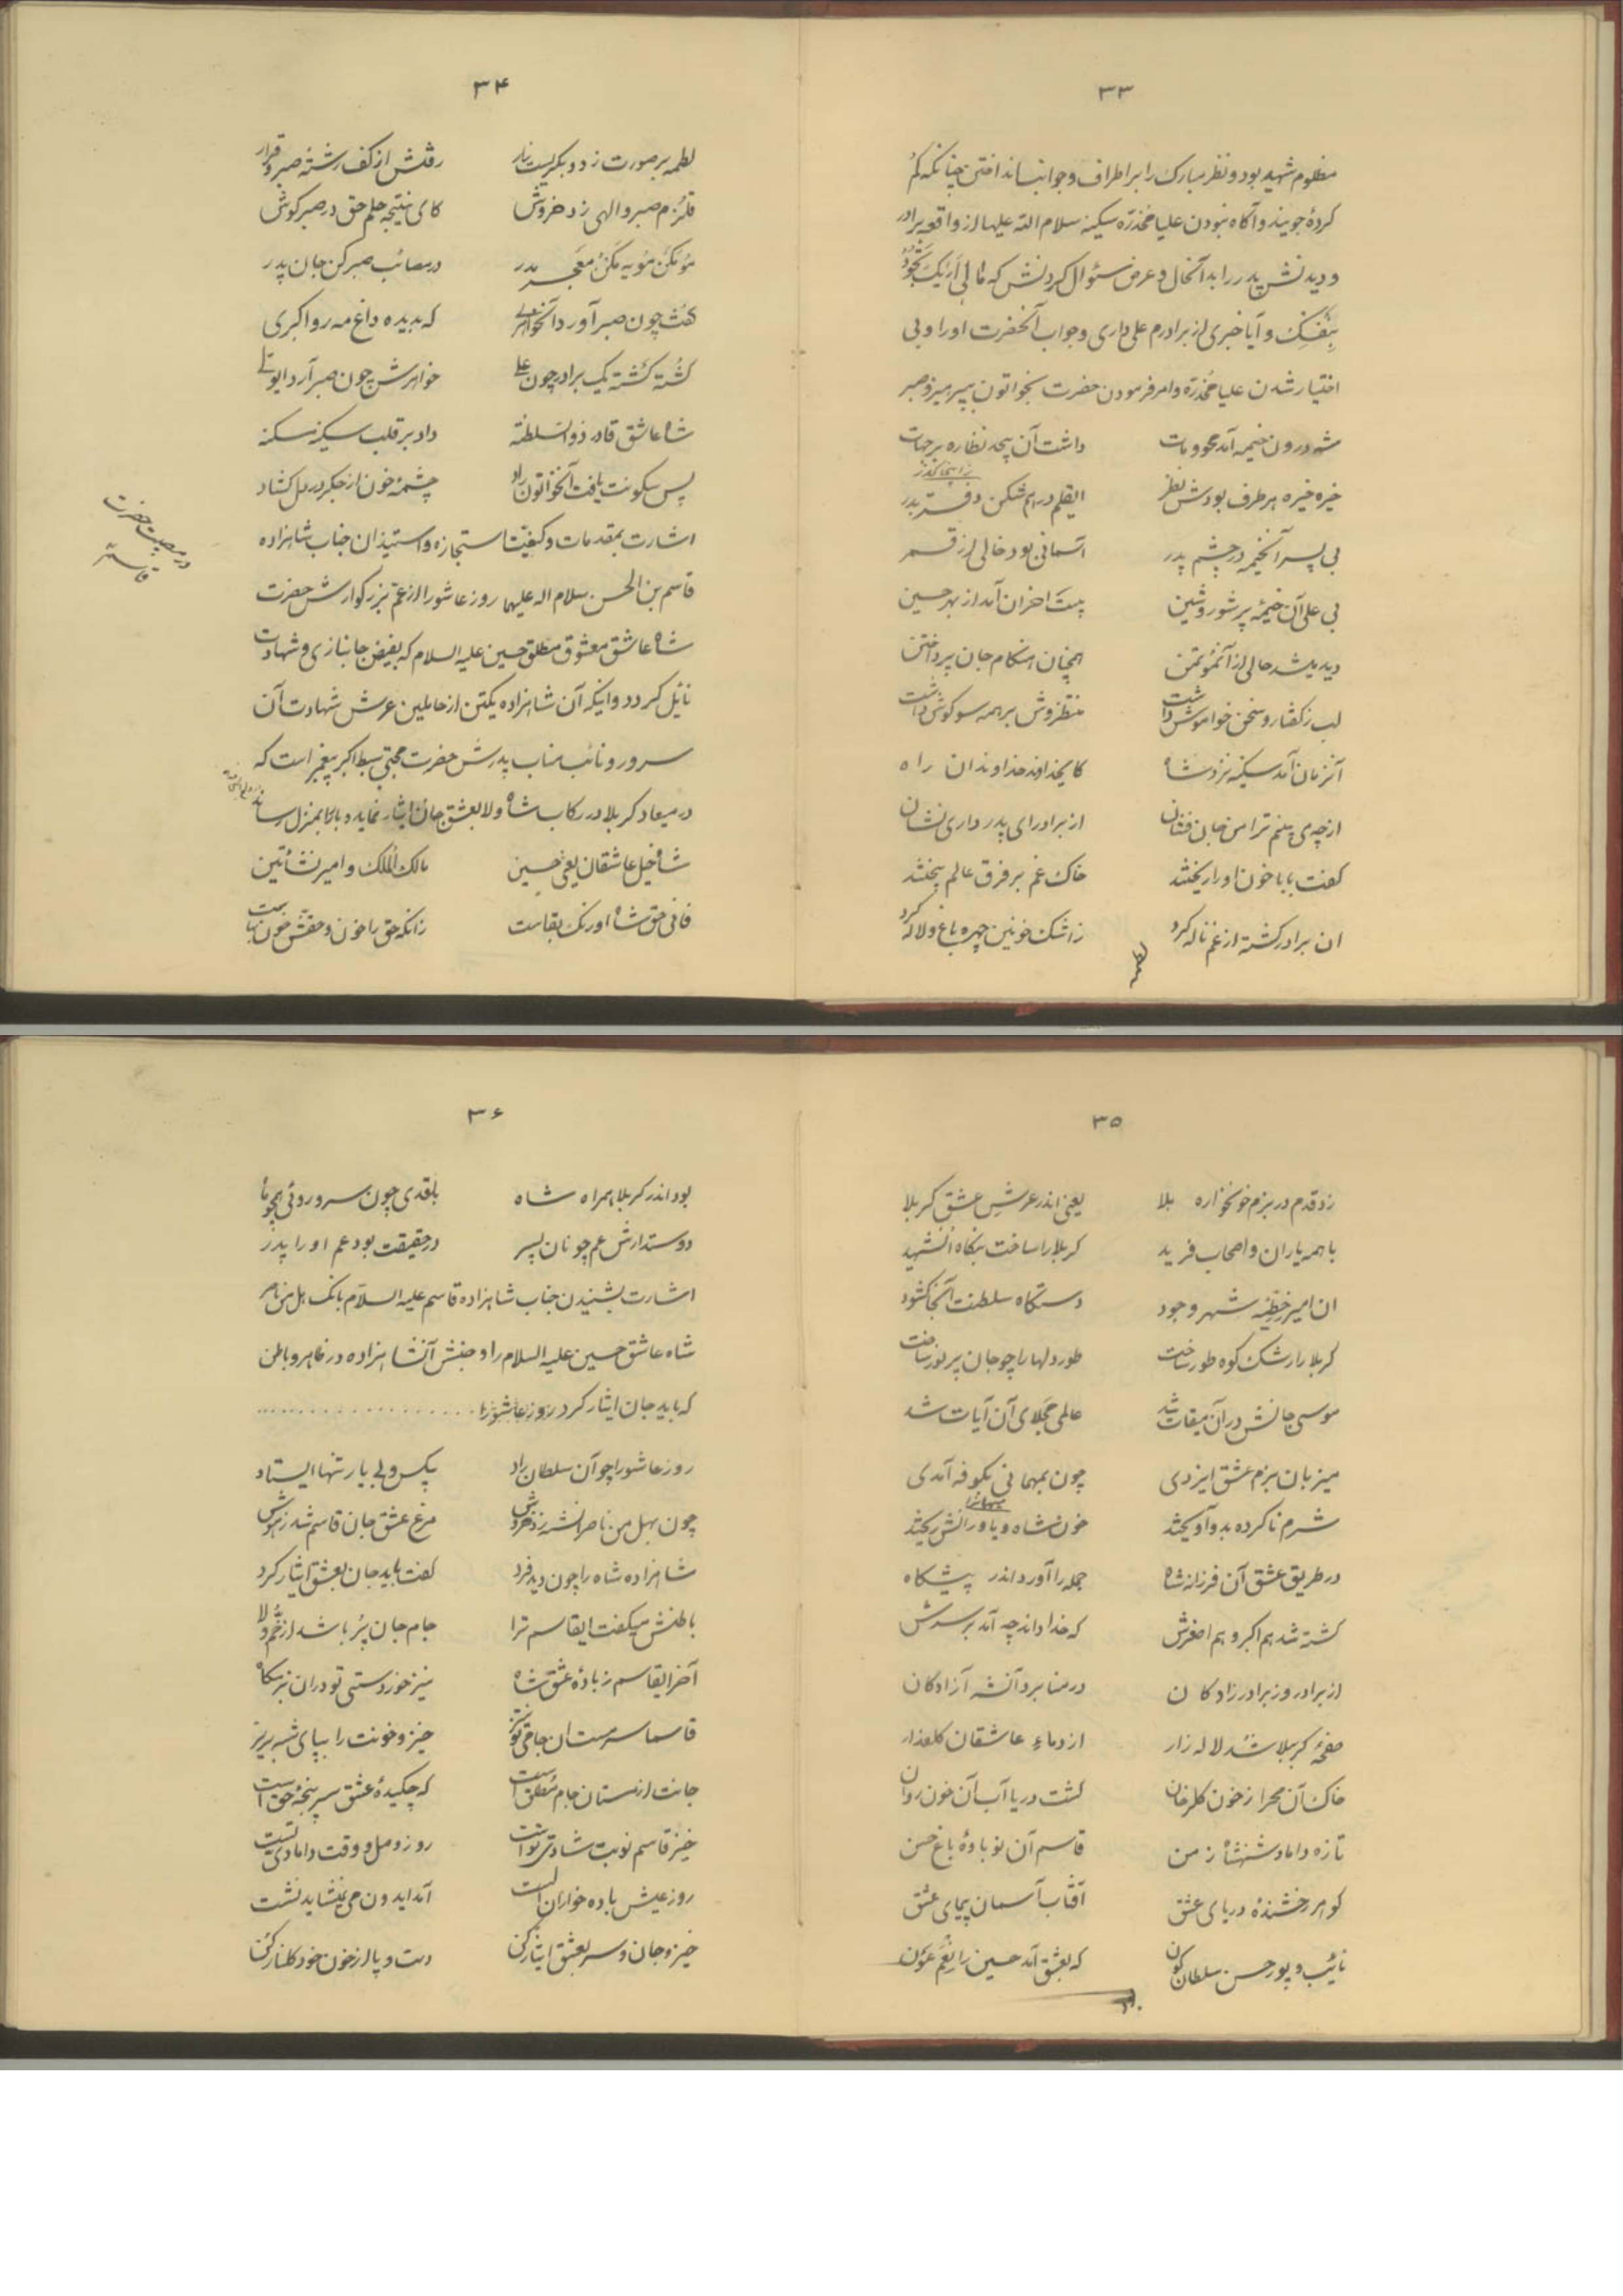 ۳۳
مظلوم شهید بود و نظر مبارک را بر اطراف و جوانب انداختن چنانکه گم
کردهٔ جویند و آگاه نبودن علیا مخدّره سکینه سلام الله علیها از واقعه برادر
و دیدنش پدر را بدانحال و عرض سئوال کردنش که مٰا لی اَرٰیکَ تَجُودُ
بِنَفسِکَ و آیا خبری از برادرم علی داری و جواب آنحضرت او را و بی
اختیار شدن علیا مخدّره و امر فرمودن حضرت بخواتون بپرهیز و صبر
شه درون خیمه آمد محو و مات داشت آن بیحد نظاره بر جهات
خیره خیره هر طرف بودش نظر ایقلم در هم شکن دفتر بدر
زاینجا گذر
بی پسر آنخیمه در چشم پدر آسمانی بود خالی از قمر
بی علی آن خیمهٔ پر شور و شین بیت احزان آمد از بهر حسین
دید بیشه خالی از آنموتمن همچنان هنگام جان پرداختن
لب ز گفتار و سخن خواموش داشت منتظروش بر همه سو گوش داشت
آنزمان آمد سکینه نزد شاه کایخداوند خداوندان راه
ازچه می بینم ترا من جان فشان از برادر ای پدر داری نشان
گفت بابا خون او را ریختند خاک غم بر فرق عالم بیختند
ان برادر کشته از غم ناله کرد ز اشک خونین چهره باغ و لاله کرد
لطمه
۳۴
لطمه بر صورت زد و بگریست زار رفتش از کف رشتهٔ صبر و قرار
قلزم صبر و الهی زد خروش کای نتیجه حلم حق در صبر کوش
مُو مَکَن مُویه مَکُن مَعجَر مدر در مصائب صبر کن جان پدر
گفت چون صبر آورد آنخواهری که بدیده داغ مه رو اکبری
گشته کشته یک برادر چون علی خواهرش چون صبر آرد ایولی
شاه عاشق قادر ذوالسلطنه داد بر قلب سکینه سکنه
پس سکونت یافت آنخواتون راد چشمهٔ خون از جگر در دل گشاد
در مصیبت حضرت
قاسم
اشارت بمقدمات و کیفیت استجازه و استیذان جناب شاهزاده
قاسم بن الحسن سلام اله علیهما روز عاشورا از عمّ بزرگوارش حضرت
شاه عاشق معشوق مطلق حسین علیه السلام که بفیض جانبازی و شهادت
نایل گردد و اینکه آن شاهزاده یکتن از حاملین عرش شهادت آن
سرور و نائب مناب پدرش حضرت مجتبی سبط اکبر پیغمبر است که
در میعاد کربلا در رکاب شاه ولا بعشق جان ایثار نماید و بار را بمنزل رساند
شاه خیل عاشقان یعنی حسین مالک الملک و امیر نشأتین
فانی حق شاه اورنک بقاست زانکه حق را خون و حقش خون بهاست
۳۵
زد قدم در بزم خونخواره بلا یعنی اندر عرش عشق کربلا
با همه یاران و اصحاب فرید کربلا را ساخت بنگاه آنشهید
ان امیر خطّهٔ شهر وجود دستگاه سلطنت آنجا گشود
کربلا را رشک کوه طور ساخت طور دلها را چو جان پر نور ساخت
موسی جانش در آن میقات شد عالمی مجلای آن آیات شد
میزبان بزم عشق ایزدی چون بمهمانی بکوفه آمدی
شرم ناکرده بدو آویختند خون شاه و یاورانش ریختند
مهمانرا
در طریق عشق آن فرزانه شاه جمله را آورد اندر پیشگاه
کشته شد هم اکبر و هم اصغرش که خدا داند چه آمد بر سرش
از برادر وز برادرزادگان در منا برد آنشه آزادگان
صفحهٔ کربلا شد لاله زار از دماء عاشقان گلعذار
خاک آن صحرا ز خون گلرخان گشت دریا آب آن خون روان
تازه داماد شهنشاه زمن قاسم آن نوباوهٔ باغ حسن
گوهر رخشندهٔ دریای عشق آفتاب آسمان پیمای عشق
نائب و پور حسن سلطان کون که بعشق آمد حسین را نِعمَ عَون
بود
۳۶
بود اندر کربلا همراه شاه با قدی چون سرو و روئی همچو ماه
دوستدارش عم چونان پسر در حقیقت بود عم او را پدر
اشارت بشنیدن جناب شاهزاده قاسم علیه السّلام بانک هل من ناصر
شاه عاشق حسین علیه السلام را و جنبش آنشاهزاده در ظاهر و باطن
که باید جان ایثار کرد روز عاشورا ..................
روز عاشورا چو آن سلطان راد بیکس و بی یار تنها ایستاد
چون بهل من ناصر آنشه زد خروش مرغ عشق جان قاسم شد ز هوش
شاهزاده شاه را چون دید فرد گفت باید جان بعشق ایثار کرد
باطنش میگفت ایقاسم ترا جام جان پُر باشد از خُمّ ولا
آخر ایقاسم ز بادهٔ عشق شاه نیز خوردستی تو در ان بزمگاه
قاسما سرمست ان جامی تو نیز خیز و خونت را بپای شه بریز
جانت از مستان جام مُطلق است که چکیدهٔ عشق سرپنجهٔ حق است
خیز قاسم نوبت شادی تو است روز وصل و وقت دامادی تست
روز عیش باده خواران الست آمد ایدون می نشاید نشست
خیز و جان و سر بعشق ایثار کن دست و پا از خون خود گلنار کن